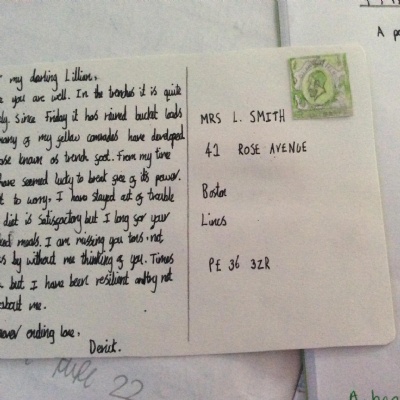 my darling Lillian,
you are well. In the trenches it is quite
Since Friday it has rained bucket loads
many of my fellow comrades have developed
known as trench foot. From my time
have seemed lucky to break free of its power.
to worry, I have stayed out of trouble
diet is satisfactory but I long for your
meals. I am missing you tons, not
by without me thinking of you. Times
but I have been resilient and try not
about me.
ending love,
Derick.
MRS L. SMITH
41 ROSE AVENUE
Boston
Lincs
PE 36 3ZR
A
22